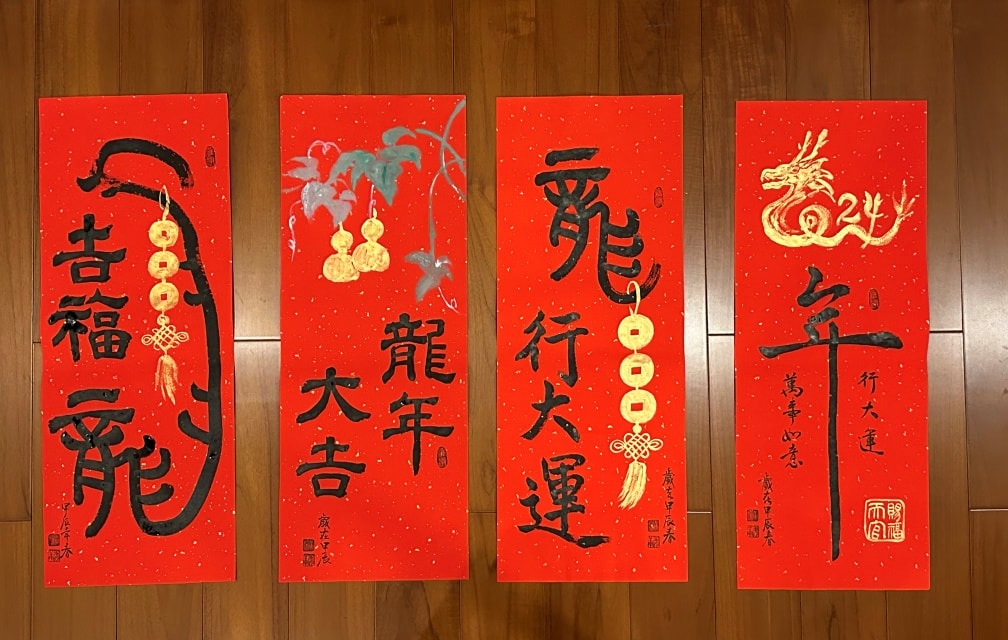 吉福龍
甲辰年春
龍年
大吉
歲在甲辰
龍行大運
歲在甲辰春
2024
年
行大運
萬事如意
歲在甲辰春
賜福
天官